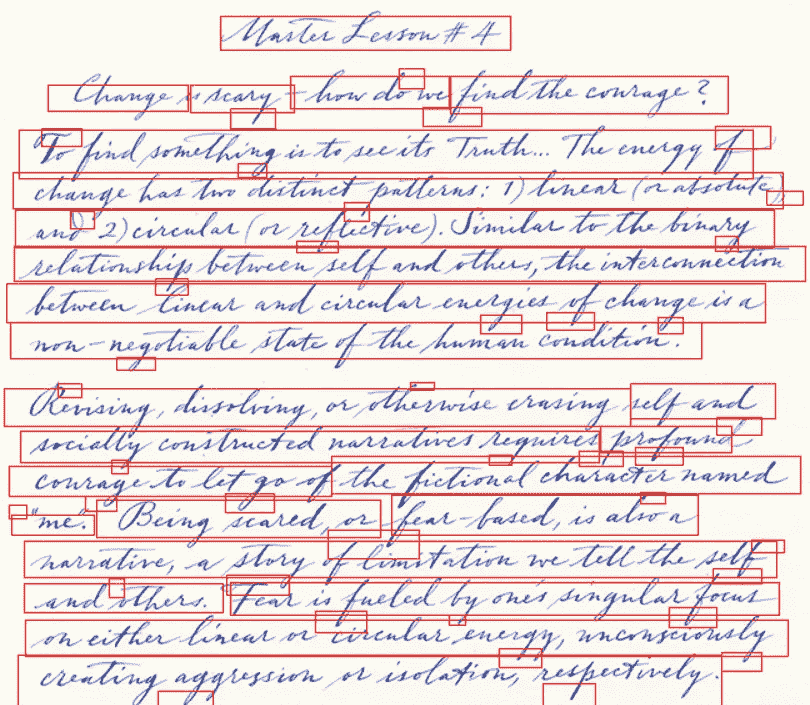 Master Lesson # 4
Change is scary – how do we find the courage?
"To find something is to see its Truth... The energy of
change has two distinct patterns: 1) linear (or absolute),
and 2) circular (or reflective). Similar to the binary
relationships between self and others, the interconnection
between linear and circular energies of change is a
non-negotiable state of the human condition.
Revising, dissolving, or otherwise erasing self and
socially constructed narratives requires profound
courage to let go of the fictional character named
"me". Being scared, or fear-based, is also a
narrative, a story of limitation we tell the self
and others. Fear is fueled by one's singular focus
on either linear or circular energy, unconsciously
creating aggression or isolation, respectively.